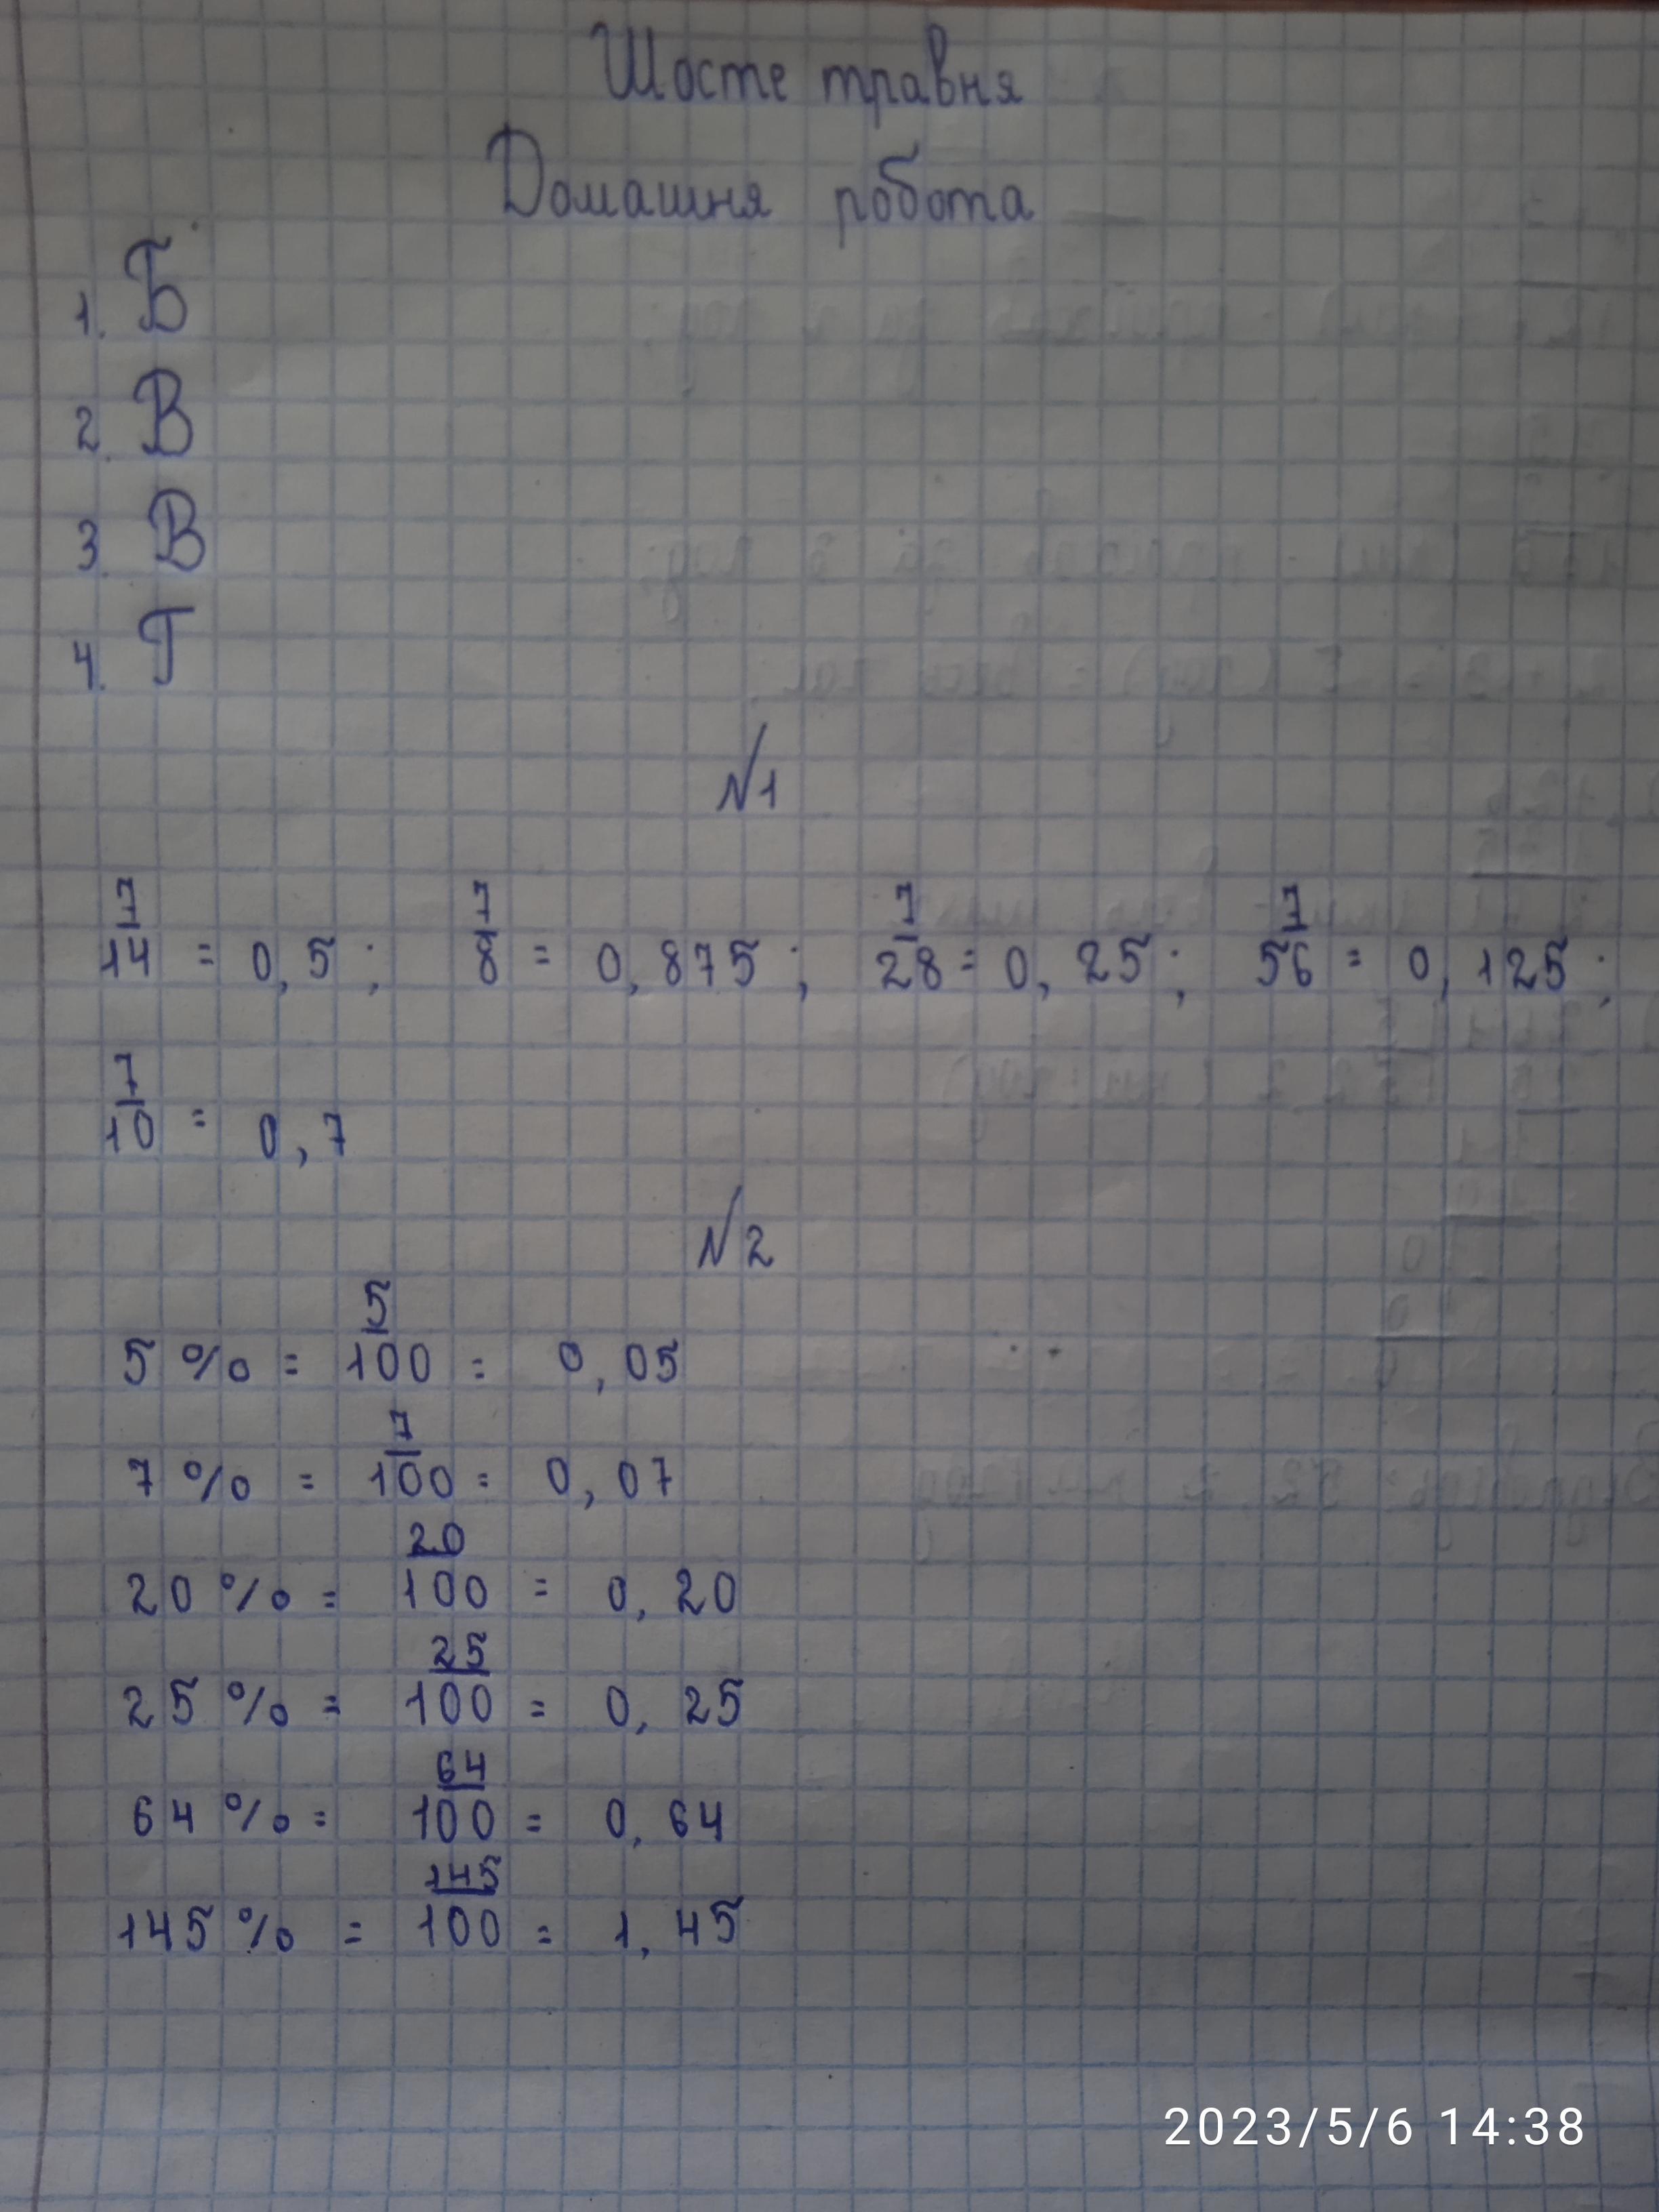 Шосте травня
Домашня робота
1. Б
2. В
3. В
4. Г
№1
7/14 = 0,5; 7/8 = 0,875; 7/28 = 0,25; 7/56 = 0,125;
7/10 = 0,7
№2
5% = 5/100 = 0,05
7% = 7/100 = 0,07
20% = 20/100 = 0,20
25% = 25/100 = 0,25
64% = 64/100 = 0,64
145% = 145/100 = 1,45
2023/5/6 14:38